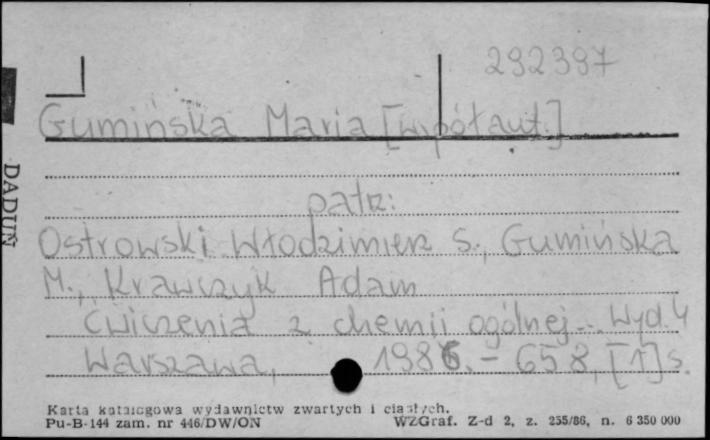 292397
Gumińska Maria [współaut.]
patrz:
Ostrowski Włodzimierz S., Gumińska
M., Krawczyk Adam
Ćwiczenia z chemii ogólnej... Wyd. 4
Warszawa, 1986. - 658, [1] s.
Karta katalogowa wydawnictw zwartych i ciągłych.
Pu-B-144 zam. nr 446/DW/ON WZGraf. Z-d 2, z. 255/86, n. 6 350 000
DADUŃ